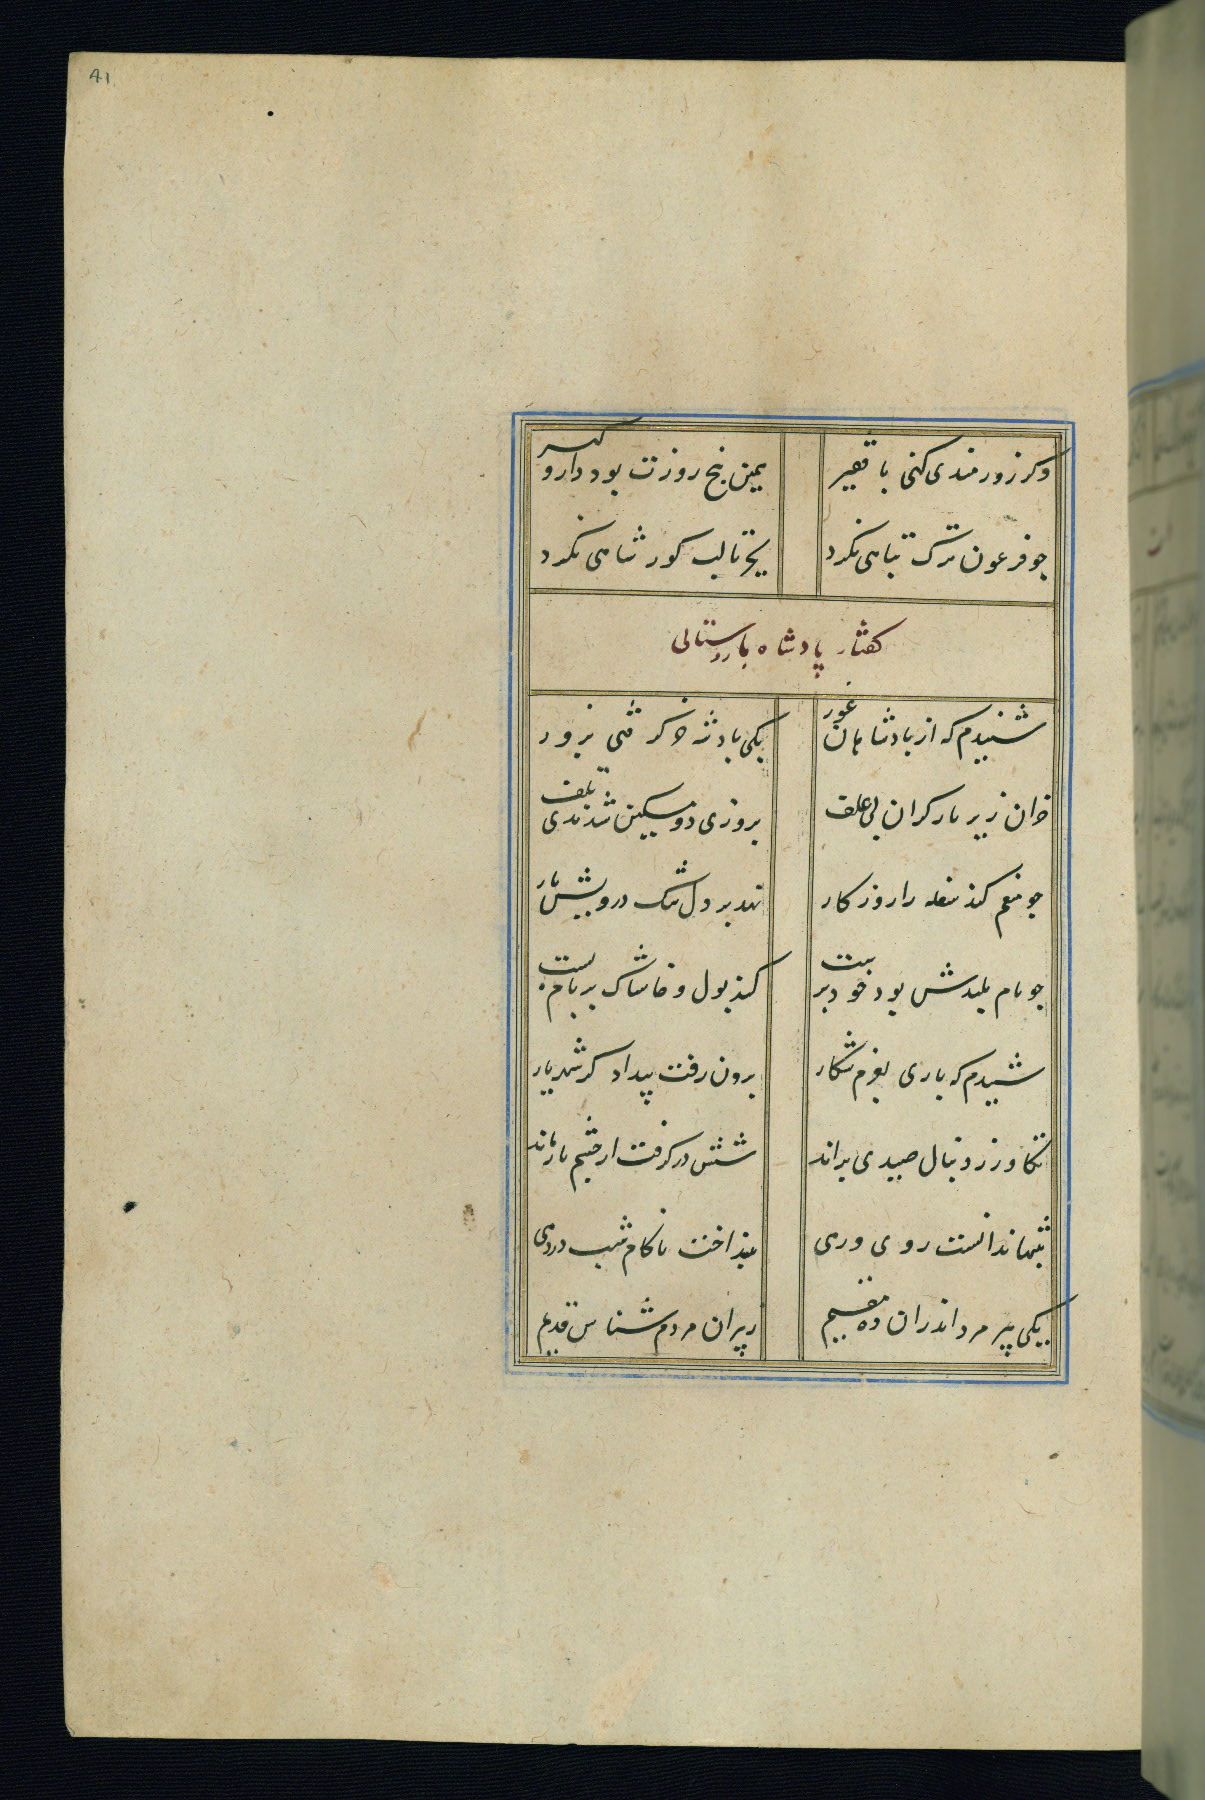 41
وکر زورمندی کنی با فقیر
یمین پنج روزت بود دارو کیر
جو فرعون ترک تباهی نکرد
بجز تا لب کور شاهی نکرد
کفتار پادشاه باروستائی
شنیدم که از بادشاهان غور
یکی بادشه خر کرفتی بزور
خران زیر بار کران بی علف
بروزی دو مسکین شدندی تلف
جو منعم کند سفله را روزکار
نهد بر دل تنک درویش بار
جو بام بلندش بود خود برست
کند بول و خاشاک بر بام پست
شنیدم که باری بعزم شکار
برون رفت بیدادکر شهریار
تکاور ز دنبال صیدی براند
شبش درکرفت از حشم بازماند
بتنها ندانست روی و رهی
بینداخت ناکام شب در دهی
یکی پیر مرد اندران ده مقیم
ز پیران مردم شناس قدیم